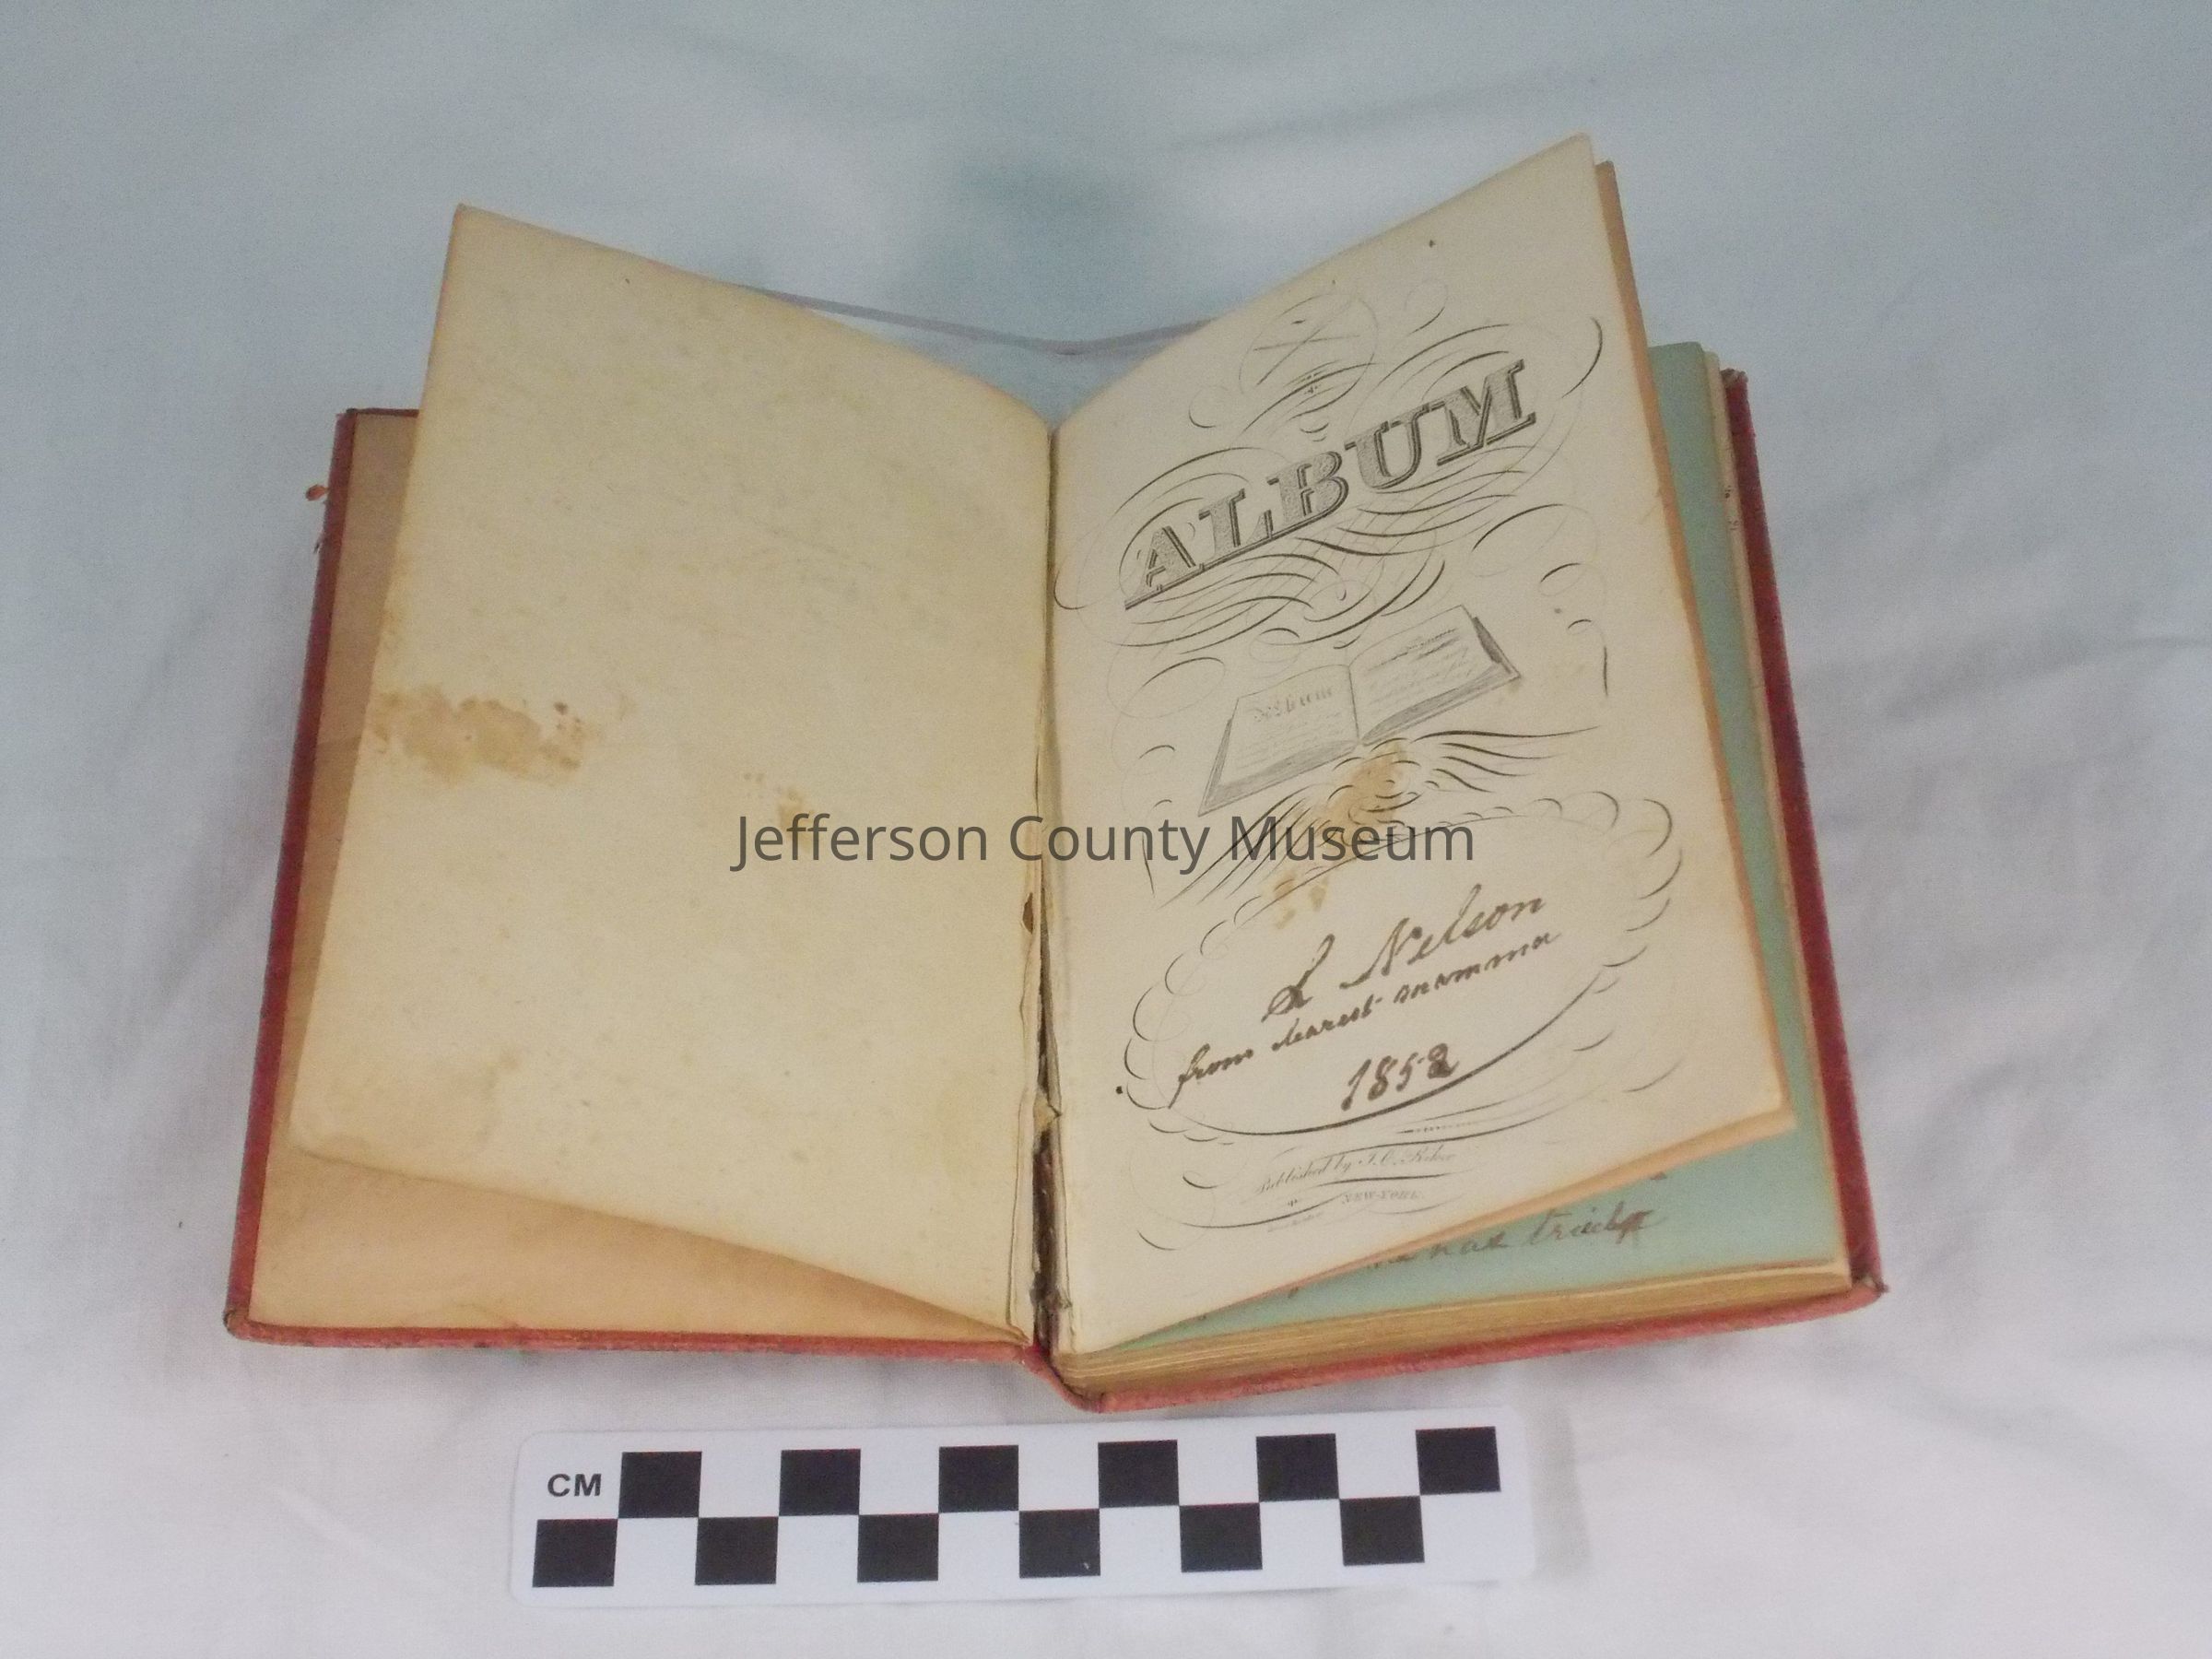 ALBUM
Welcome
Jefferson County Museum
L Nelson
from dearest mamma
1852
Published by J.C. Riker
NEW-YORK
nas
CM